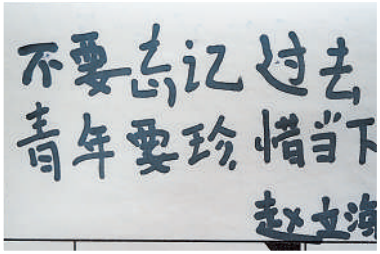 不要忘记过去
青年要珍惜当下
赵文海